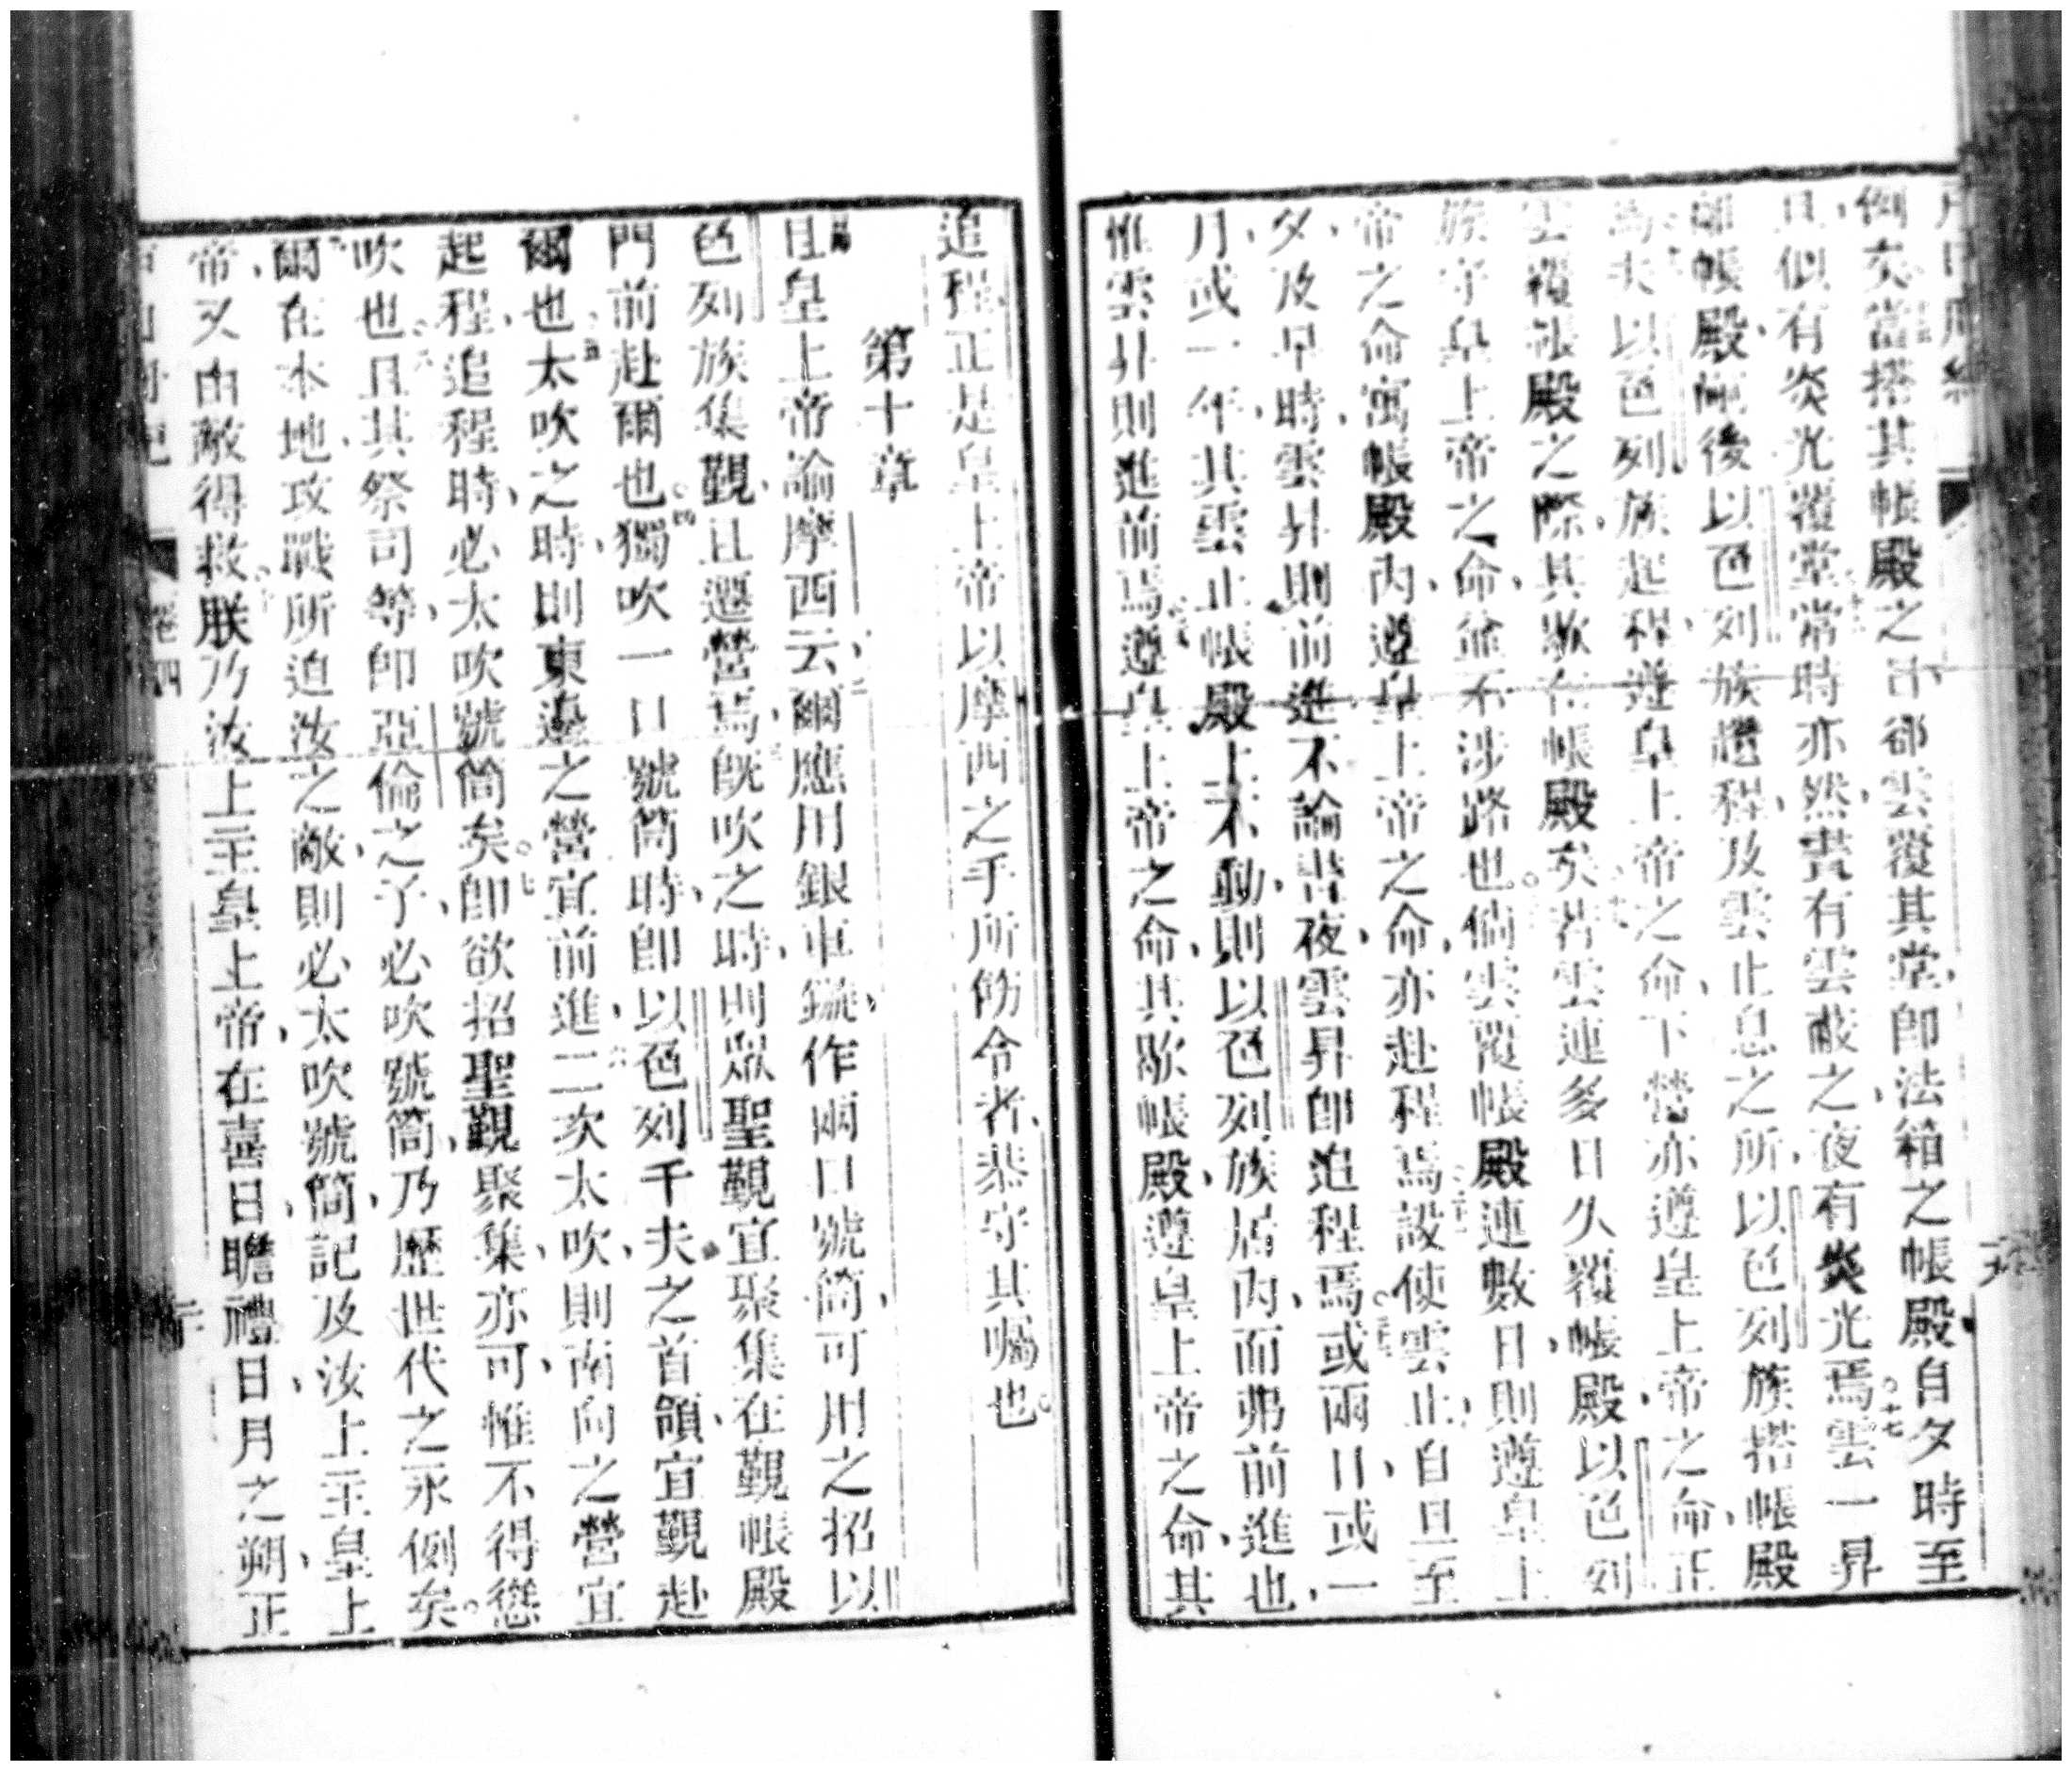 例矣當搭其帳殿之日卻雲覆其堂卽法箱之帳殿自夕時至
旦似有炎光覆堂常時亦然晝有雲蔽之夜有炎光焉雲一昇
離帳殿而後以色列族趲程及雲止息之所以色列族搭帳殿
焉夫以色列族起程遵皇上帝之命下營亦遵皇上帝之命正
雲覆帳殿之際其歇在帳殿矣若雲連多日久覆帳殿以色列
族守皇上帝之命並不涉路也倘雲覆帳殿連數日則遵皇上
帝之命寓帳殿內遵皇上帝之命亦赴程焉設使雲止自旦至
夕及早時雲昇則前進不論晝夜雲昇卽追程焉或兩日或一
月或一年其雲止帳殿上不動則以色列族居內而弗前進也
惟雲昇則進前焉遵皇上帝之命其歇帳殿遵皇上帝之命其
追程正是皇上帝以摩西之手所飭令者恭守其囑也
第十章
且皇上帝諭摩西云爾應用銀車鏇作兩口號筒可用之招以
色列族集覲且遷營焉旣吹之時則眾聖覲宜聚集在覲帳殿
門前赴爾也獨吹一口號筒時卽以色列千夫之首領宜覲赴
爾也太吹之時則東邊之營宜前進二次太吹則南向之營宜
起程追程時必太吹號筒矣卽欲招聖覲聚集亦可惟不得愆
吹也且其祭司等卽亞倫之子必吹號筒乃歷世代之永例矣
爾在本地攻戰所迫汝之敵則必太吹號筒記及汝上主皇上
帝又由敵得救朕乃汝上主皇上帝在喜日瞻禮日月之朔正
卷四